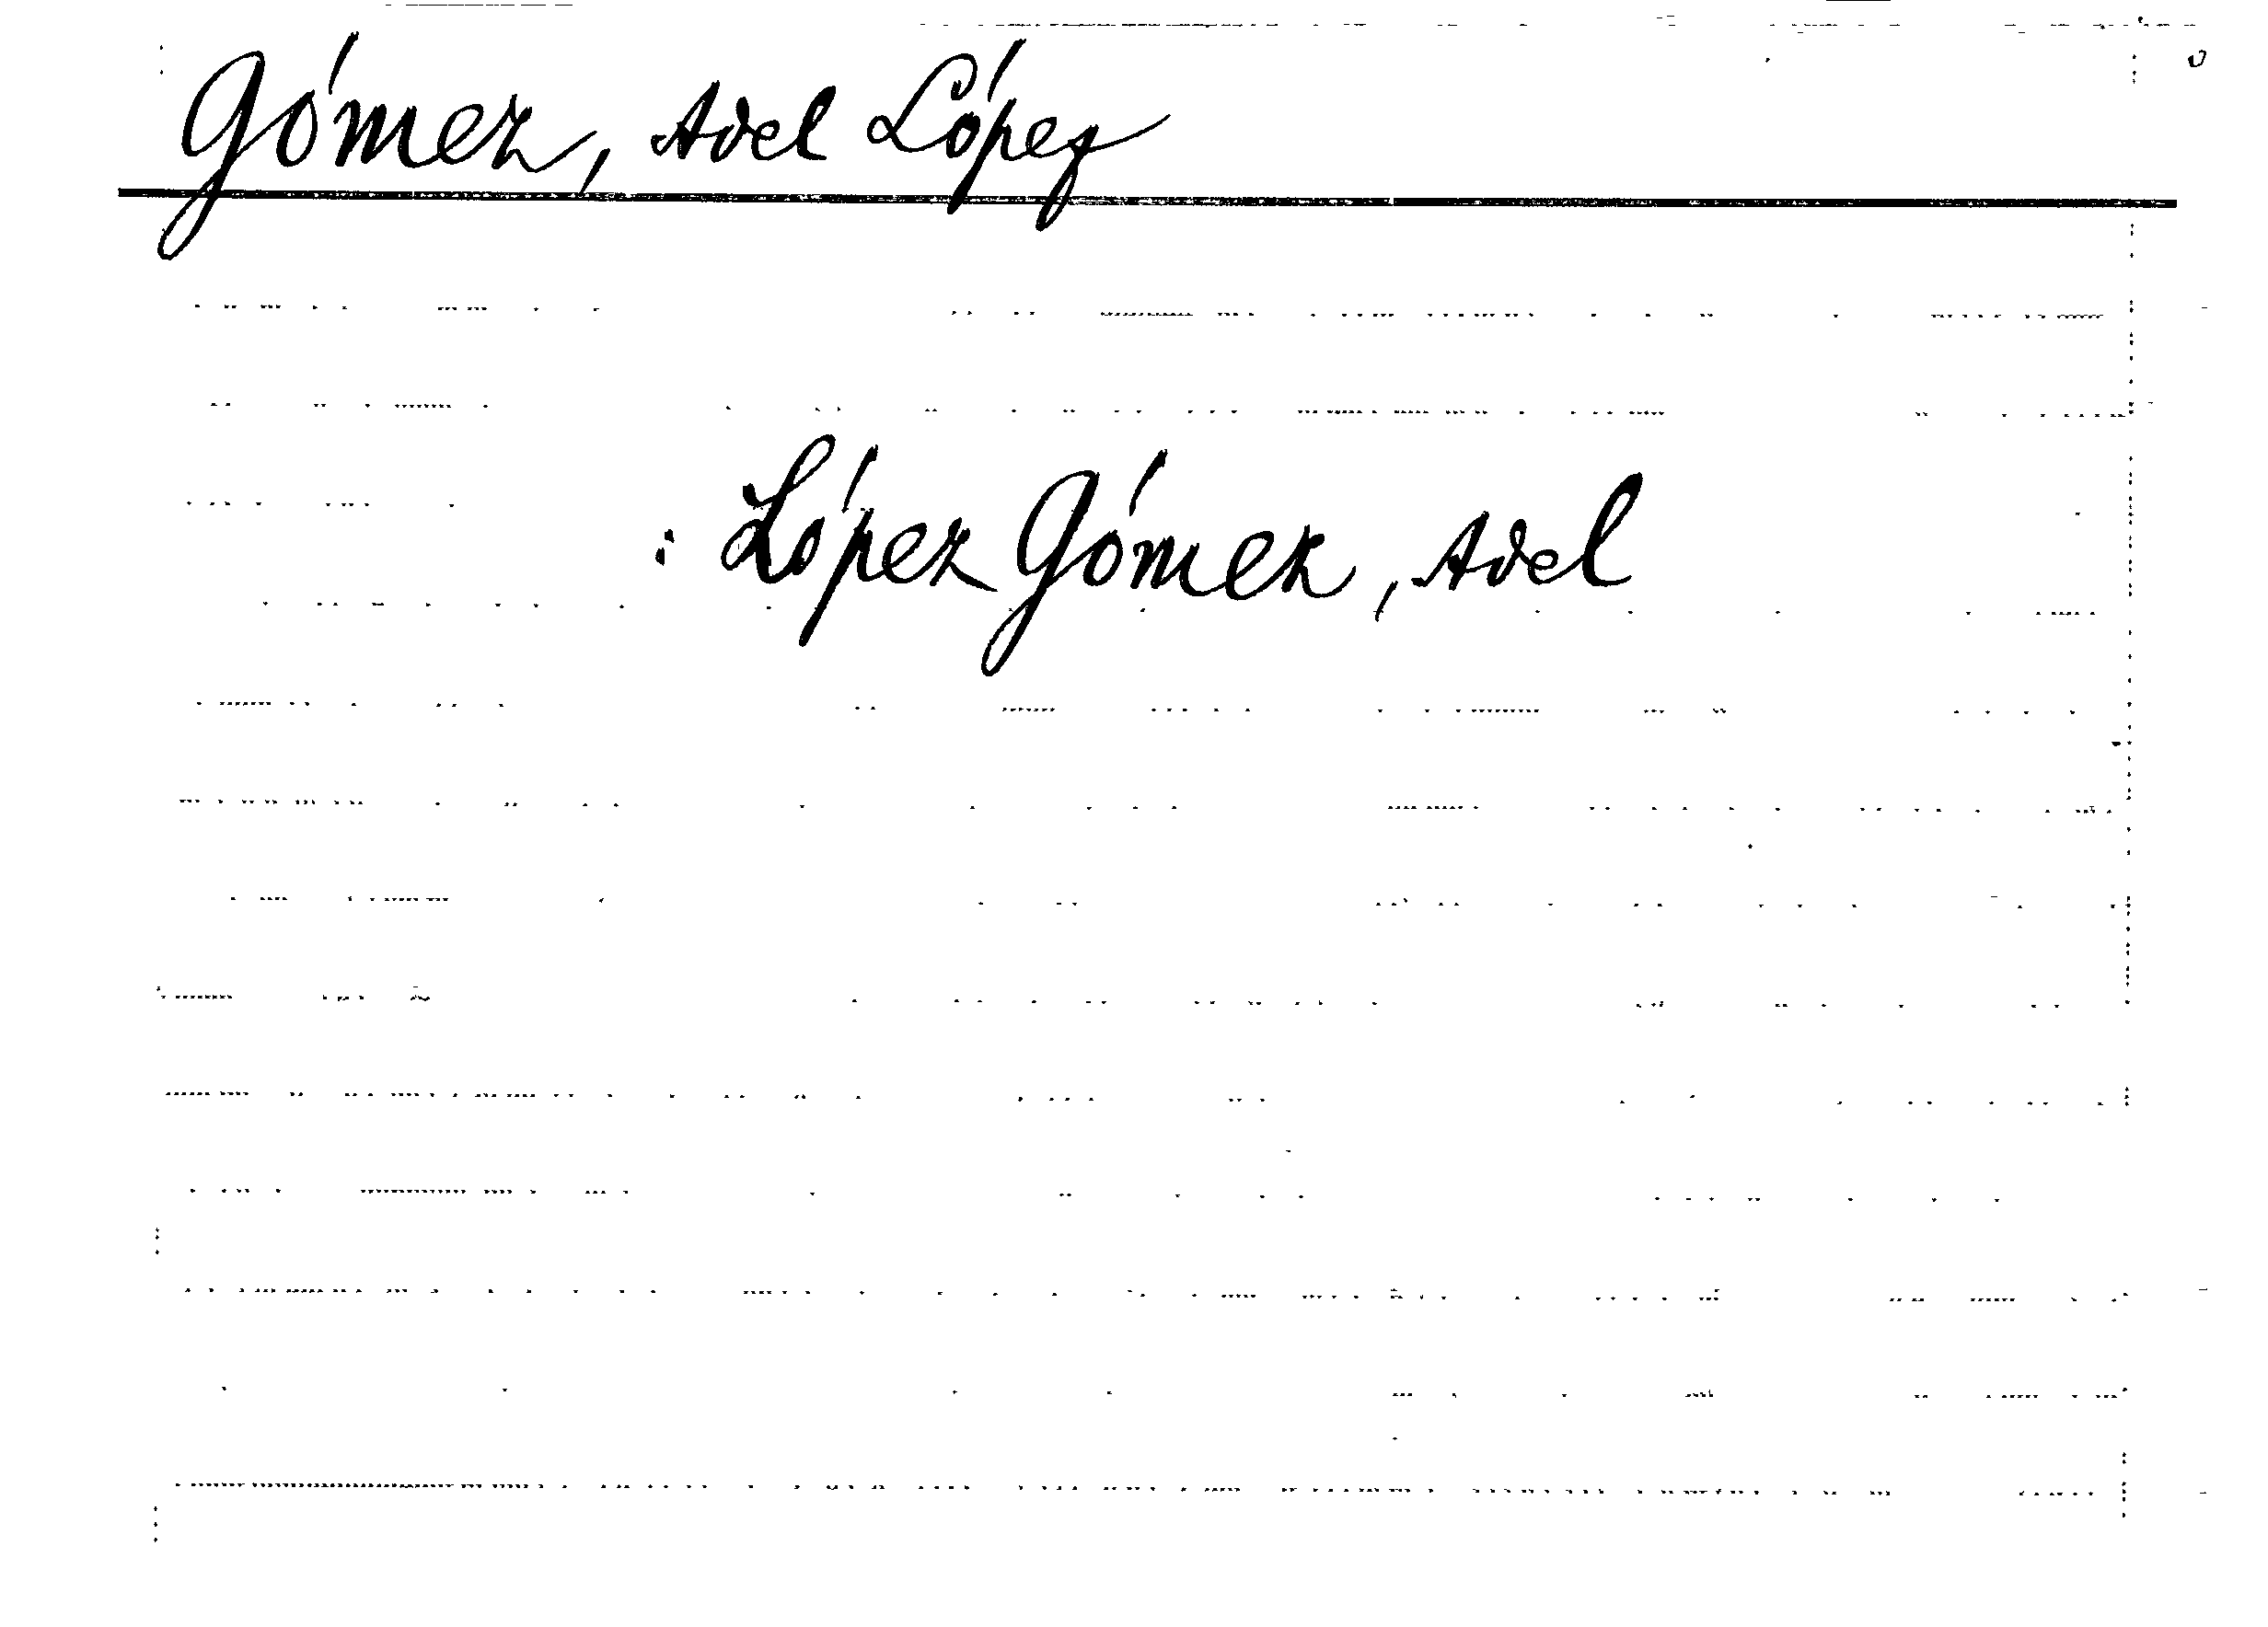 Gómez, Adel López
: López Gómez, Adel